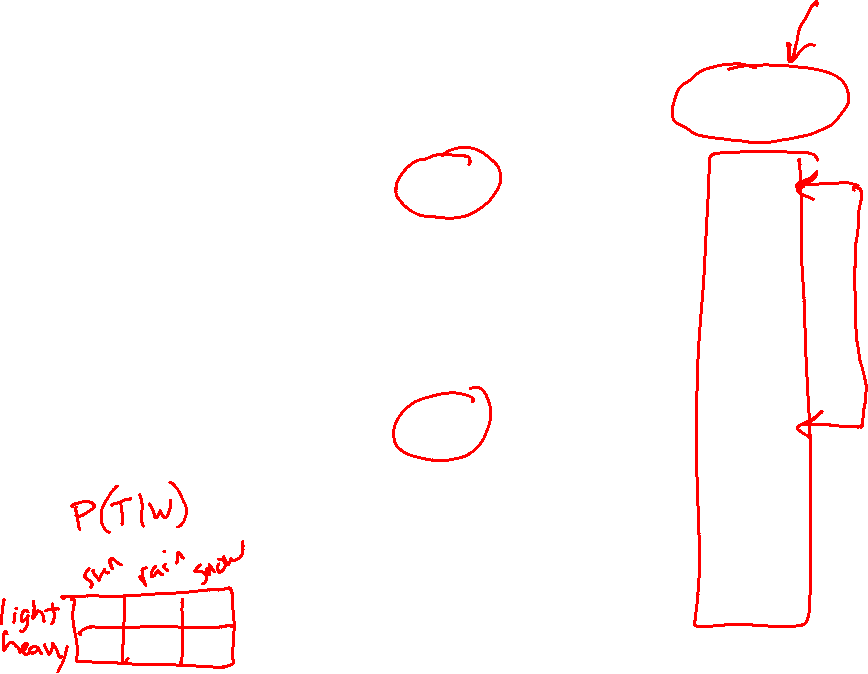 P(T|W)
sun rain snow
light
heavy